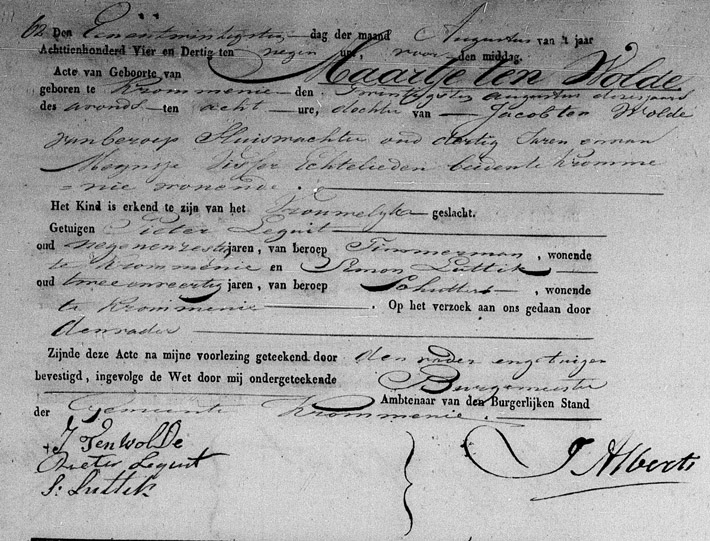 62 Den Eenentwintigsten dag der maand Augustus van 't jaar
Achttienhonderd Vier en Dertig ten negen ure, voor den middag.
Acte van Geboorte van Maartje ten Wolde
geboren te Krommenie den twintigsten augustus dezes jaars
des avonds ten acht ure, dochter van Jacob ten Wolde
van beroep Sluiswachter oud dertig Jaren en van
Megnisje Visser Echtelieden beide te Kromme
= nie wonende.
Het Kind is erkend te zijn van het Vrouwelijke geslacht.
Getuigen Pieter Lequit
oud negenenzestig jaren, van beroep Timmerman, wonende
te Krommenie en Simon Luttik
oud tweeenveertig jaren, van beroep wonende
te Krommenie Op het verzoek aan ons gedaan door
den vader
Zijnde deze Acte na mijne voorlezing geteekend door den vader en getuigen
bevestigd, ingevolge de Wet door mij ondergeteekende Burgemeester
Ambtenaar van den Burgerlijken Stand
der Gemeente Krommenie.
J Ten Wolde
Pieter Lequit
S: Luttik
J Alberts